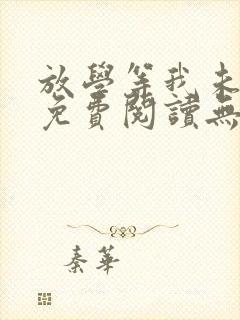 放學等我未
免費閱讀無
秦華